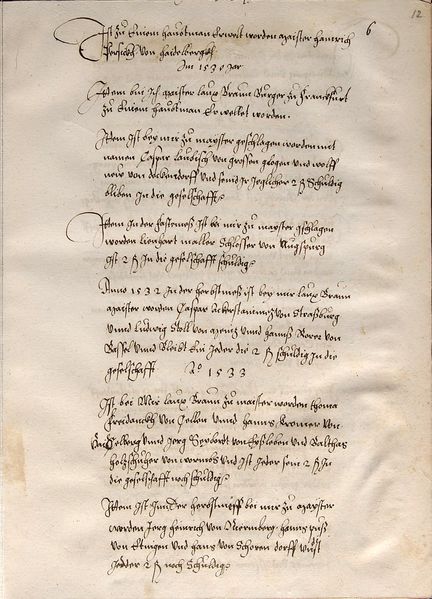 12
6
Ist zu Einem haubtman Erwelt worden maister hainrich
von haidelbergkh
Im 1530 Jar
Item bin Ich maister laux Braun Burger zu Franckfurt
zu Einem haubtman Erwellet worden.
Item Ist bey mir zu mayster geschlagen worden mit
namen Caspar laudisch von grossen glogen und wolff
von dockendorff und send Ir Jeglicher 2 fl Schuldig
bliben In die geselschafft
Item In der fastenmeß Ist bei mir zu mayster gschlagen
worden lienhart maller Schlosser von Augspurg
Ist 2 fl In die geselschafft schuldig
Anno 1532 In der herbstmeß ist bey mir laux Braun
maister worden Caspar von Straßburg
Unnd ludwig Stoll von mentz unnd hannß Borer von
Bassel unnd Bleibt Ein Jeder die 2 fl schuldig In die
geselschafft Ao 1533
Ist bei Mir laux Braun zu maister worden thoma
freidanckh von Collen unnd hanns Kromer von
unnd Jorg Seybart von und Balthas
holzschucher von wormbs und Ist Jeder sein 2 fl In
die geselschafft noch schuldig
Item Ist Inn Der herbstmeß bei mir zu mayster
worden Jorg heinrich von Nermberg hanns
von Etingen und hans von Schoren dorff
Jeder 2 fl noch Schuldig